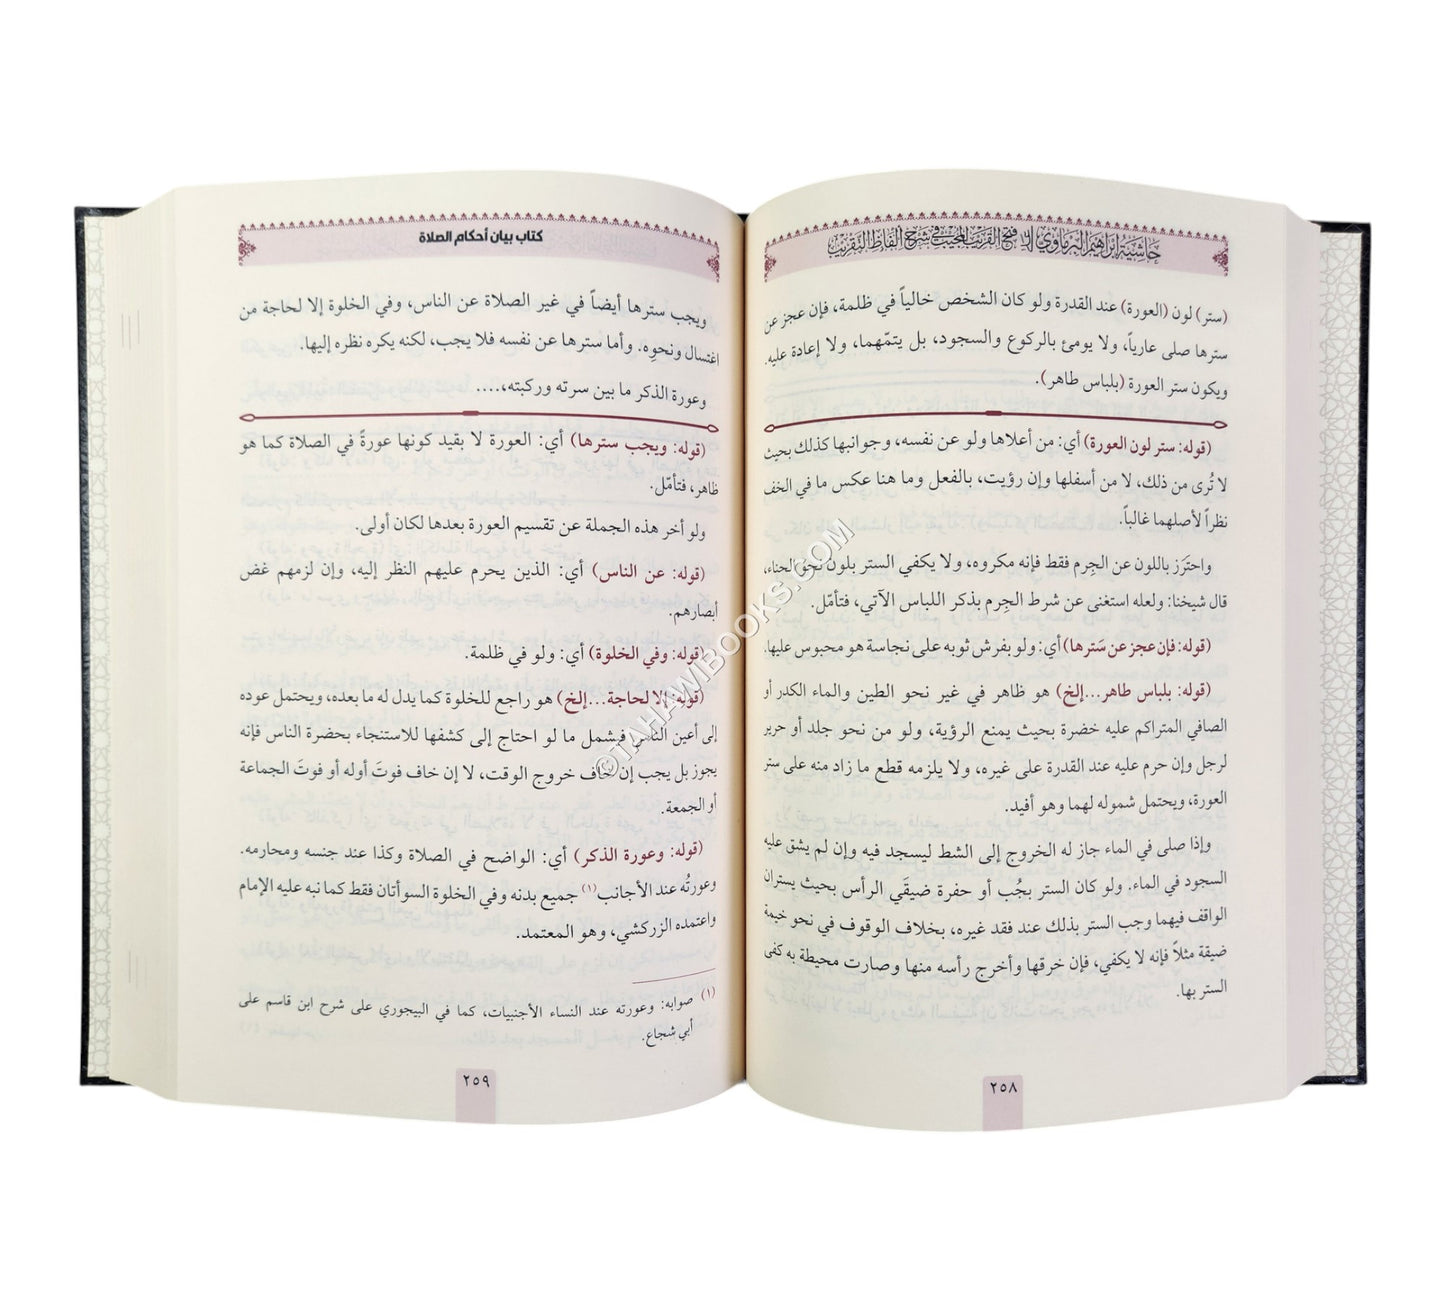 حاشية إبراهيم البرماوي على فتح القريب المجيب في شرح ألفاظ التقريب
(ستر) لون (العورة) عند القدرة ولو كان الشخص خالياً في ظلمة، فإن عجز عن
سترها صلى عارياً، ولا يومئ بالركوع والسجود، بل يتمّهما، ولا إعادة عليه.
ويكون ستر العورة (بلباس طاهر).
(قوله: ستر لون العورة) أي: من أعلاها ولو عن نفسه، وجوانبها كذلك بحيث
لا تُرى من ذلك، لا من أسفلها وإن رؤيت، بالفعل وما هنا عكس ما في الخف
نظراً لأصلهما غالباً.
واحترَز باللون عن الجِرم فقط فإنه مكروه، ولا يكفي الستر بلون نحو الحناء،
قال شيخنا: ولعله استغنى عن شرط الجِرم بذكر اللباس الآتي، فتأمّل.
(قوله: فإن عجز عن سَترها) أي: ولو بفرش ثوبه على نجاسة هو محبوس عليها.
(قوله: بلباس طاهر...إلخ) هو ظاهر في غير نحو الطين والماء الكدر أو
الصافي المتراكم عليه خضرة بحيث يمنع الرؤية، ولو من نحو جلد أو حرير
لرجل وإن حرم عليه عند القدرة على غيره، ولا يلزمه قطع ما زاد منه على ستر
العورة، ويحتمل شموله لهما وهو أفيد.
وإذا صلى في الماء جاز له الخروج إلى الشط ليسجد فيه وإن لم يشق عليه
السجود في الماء. ولو كان الستر بجُب أو حفرة ضيقَي الرأس بحيث يستران
الواقف فيهما وجب الستر بذلك عند فقد غيره، بخلاف الوقوف في نحو خيمة
ضيقة مثلاً فإنه لا يكفي، فإن خرقها وأخرج رأسه منها وصارت محيطة به كفى
الستر بها.
٢٥٨
كتاب بيان أحكام الصلاة
ويجب سترها أيضاً في غير الصلاة عن الناس، وفي الخلوة إلا لحاجة من
اغتسال ونحوِه. وأما سترها عن نفسه فلا يجب، لكنه يكره نظره إليها.
وعورة الذكر ما بين سرته وركبته،....
(قوله: ويجب سترها) أي: العورة لا بقيد كونها عورةً في الصلاة كما هو
ظاهر، فتأمّل.
ولو أخر هذه الجملة عن تقسيم العورة بعدها لكان أولى.
(قوله: عن الناس) أي: الذين يحرم عليهم النظر إليه، وإن لزمهم غض
أبصارهم.
(قوله: وفي الخلوة) أي: ولو في ظلمة.
(قوله: إلا لحاجة...إلخ) هو راجع للخلوة كما يدل له ما بعده، ويحتمل عوده
إلى أعين الناس فيشمل ما لو احتاج إلى كشفها للاستنجاء بحضرة الناس فإنه
يجوز بل يجب إن خاف خروج الوقت، لا إن خاف فوتَ أوله أو فوتَ الجماعة
أو الجمعة.
(قوله: وعورة الذكر) أي: الواضح في الصلاة وكذا عند جنسه ومحارمه.
وعورتُه عند الأجانب(١) جميع بدنه وفي الخلوة السوأتان فقط كما نبه عليه الإمام
واعتمده الزركشي، وهو المعتمد.
(١) صوابه: وعورته عند النساء الأجنبيات، كما في البيجوري على شرح ابن قاسم على
أبي شجاع.
٢٥٩
©TAHAWIBOOKS.COM